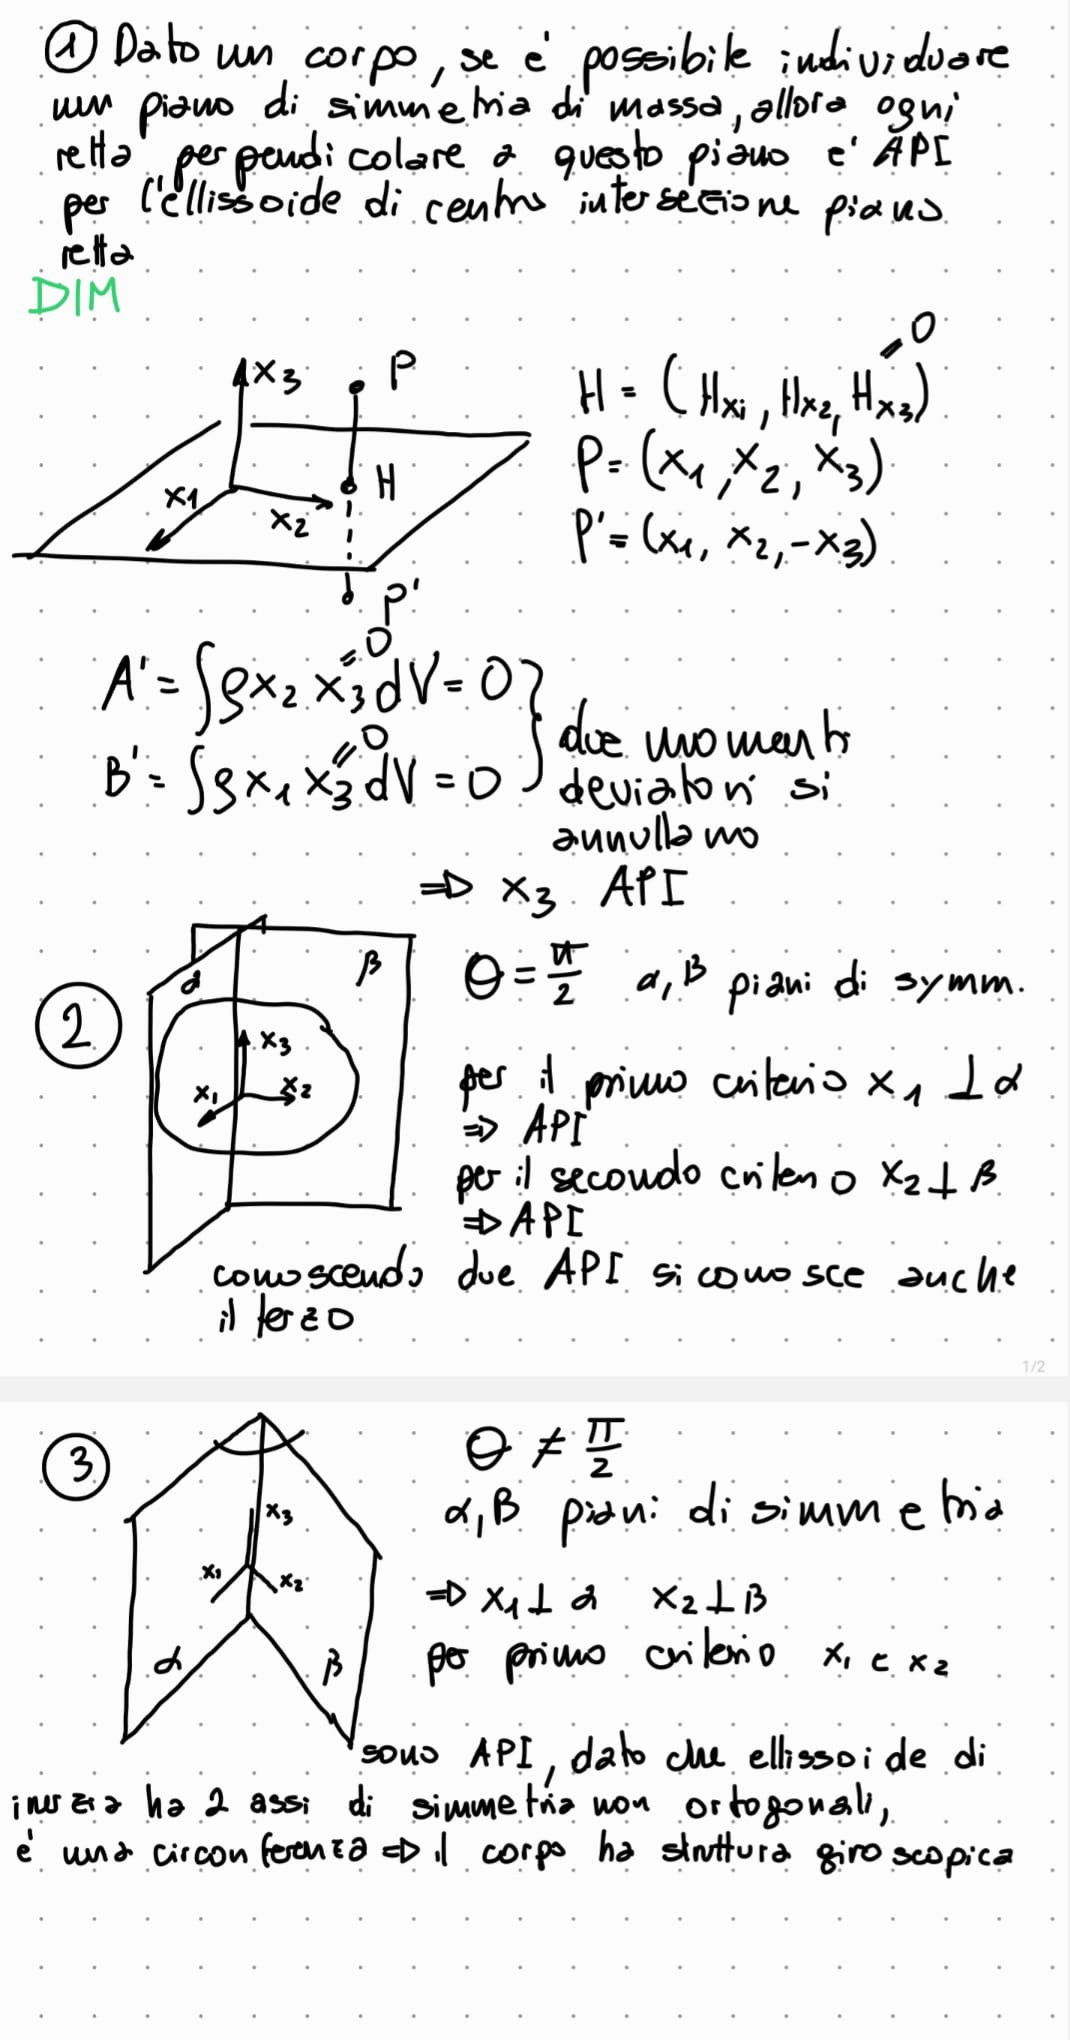 ① Dato un corpo, se e' possibile individuare
un piano di simmetria di massa, allora ogni
retta perpendicolare a questo piano e' API
per l'ellissoide di centro intersezione piano
retta
DIM
x3 P
H
x1
x2
P'
H = (Hxi, Hx2, Hx3) = 0
P = (x1, x2, x3)
P' = (x1, x2, -x3)
A' = ∫ρx2 x3 dV = 0 }
= 0
B' = ∫ρx1 x3 dV = 0
= 0
due momenti
deviatori si
annullano
=> x3 API
②
α
β
x3
x1
x2
θ = π/2 α, β piani di symm.
per il primo criterio x1 ⊥ α
=> API
per il secondo criterio x2 ⊥ β
=> API
conoscendo due API si conosce anche
il terzo
1/2
③
x3
x1
x2
α
β
θ ≠ π/2
α, β piani di simmetria
=> x1 ⊥ α x2 ⊥ β
per primo criterio x1 e x2
sono API, dato che ellissoide di
inerzia ha 2 assi di simmetria non ortogonali,
e' una circonferenza => il corpo ha struttura giroscopica